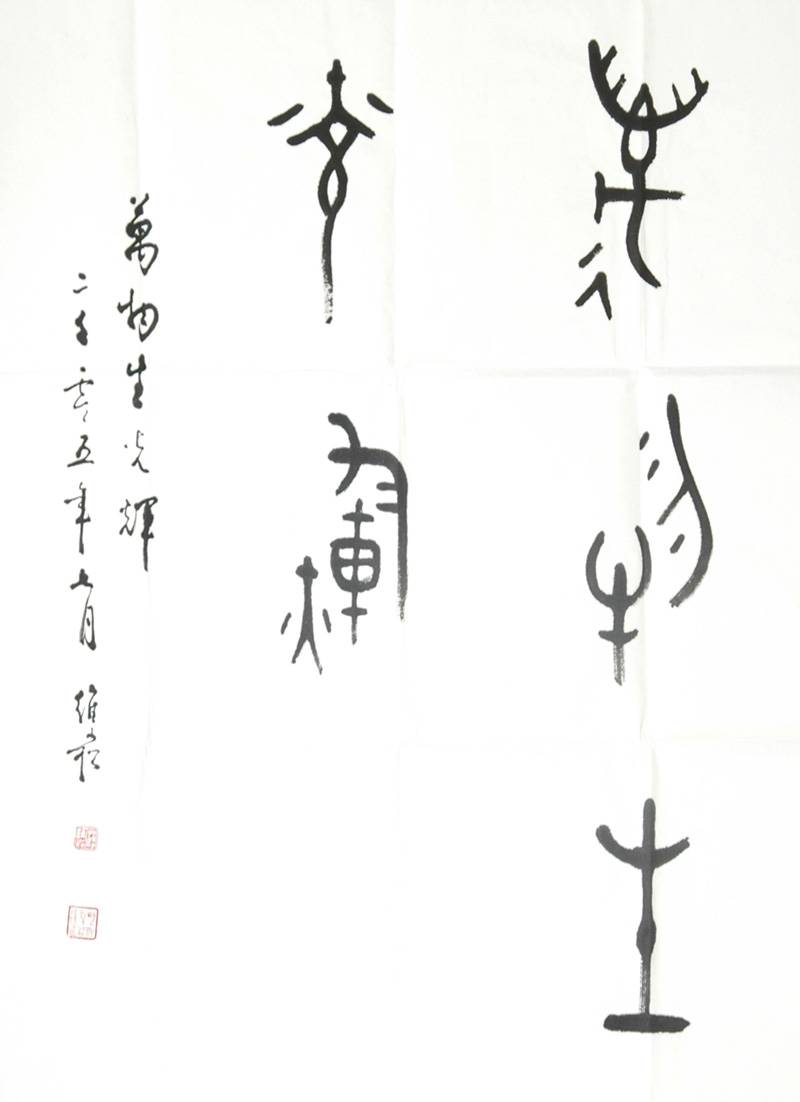 萬物生
光輝
萬物生光輝
二千零五年七月